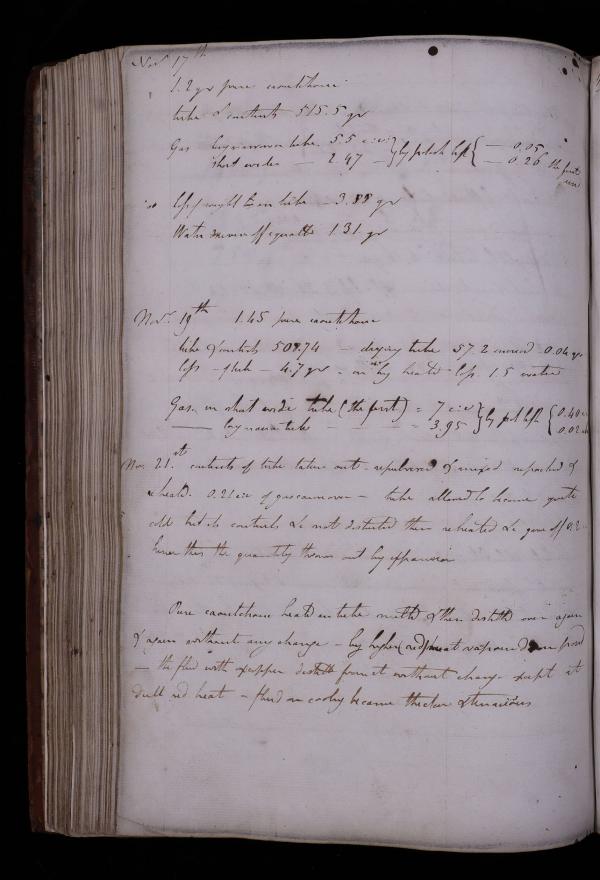 Nov. 17th
1.2 gr pure caoutchouc
tube & contents 515.5 gr
Gas long narrow tube 5.5 c:i: } by potash left { — 0.05
short wide — 2.47 — — 0.26 the first
loss of weight in tube — 3.88 gr
Water driven off equalled 1.31 gr
Nov. 19th 1.45 pure caoutchouc
tube & contents 508.74 — drying tube 57.2 increased 0.04 gr
loss — — 4.7 gr — on heated — loss 1.5 water
Gas. in short wide tube (the first) = 7 c:i: } by pot left { 0.40
—— long narrow tube - - - = 3.95 0.02
Nov. 21.st contents of tube taken out - repulverised & mixed repacked &
reheated. 0.21 c:i: of gas came over — tube allowed to become quite
cold but its contents &c not disturbed then reheated &c gave off 0.2
hence this the quantity thrown out by expansion
Pure caoutchouc heated in tube melted & then distilled over again
& again without any change - by higher (red) heat vapour
— the fluid with copper distilled from it without change except at
dull red heat - fluid on cooling became thicker & tenacious